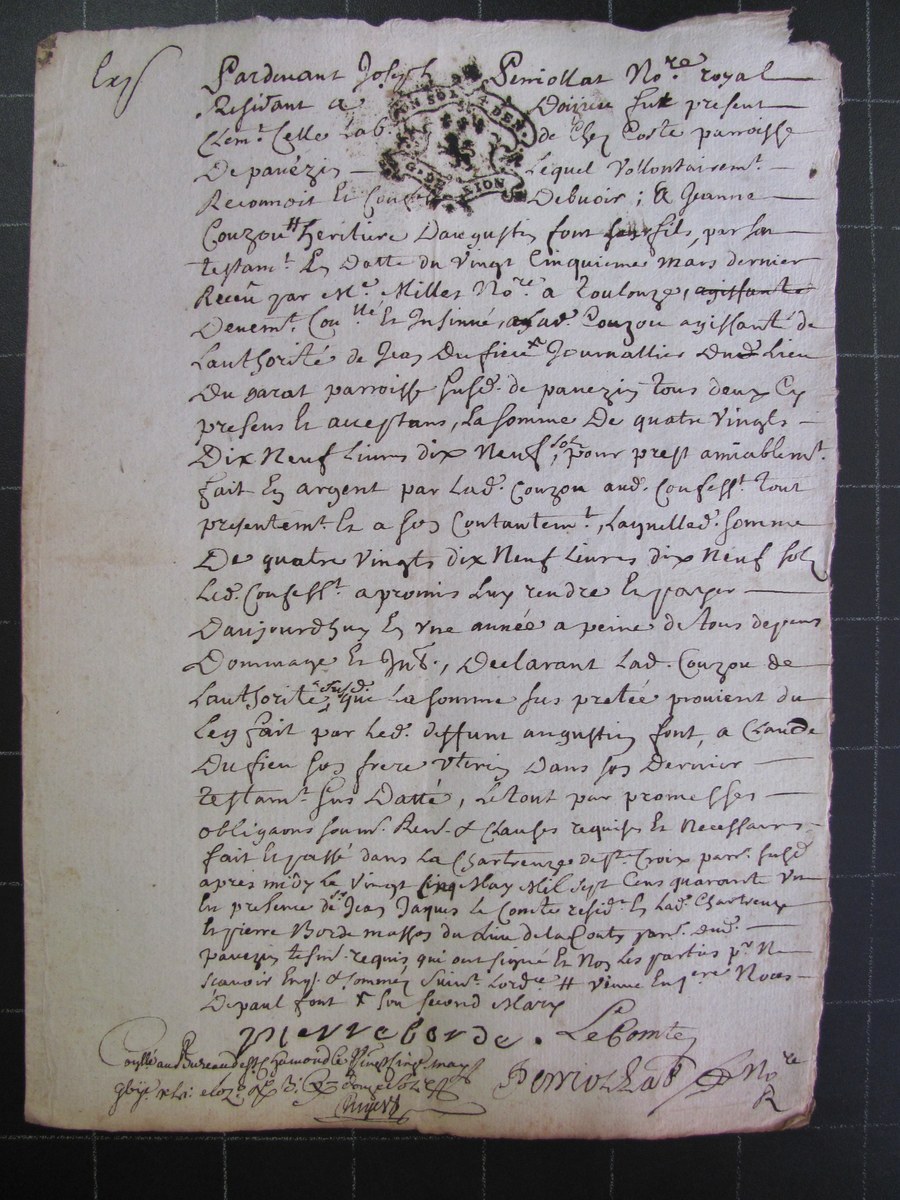 Exp
Pardevant Joseph Perriollat No.re royal
Residant a Doizieu fut present
Clem.t Celle Lab. de Chez Coste parroisse
De pavézin lequel Vollontairem.t
Reconnoit Et Confesse Debvoir ; A Jeanne
Couzou # heritiere Daugustin font son fils, par son
testam.t En Datte du Vingt Cinquieme mars dernier
Receu par M.e Millet No.re a Toulouze, agissante
Devem.t Con.llé Et Insinué, Lad. Couzou agissante de
Lauthorité de Jean Dufieu x Journallier Du Lieu
Du garat parroisse susd. de pavezin tous deux Cy
presens Et acceptans, La somme De quatre Vingts
Dix Neuf Livres dix Neuf sols, pour prest amiablem.t
fait En argent par Lad. Couzou aud. Confess.t tout
presentem.t Et a son Contantem.t, Laquelle d. somme
De quatre Vingts dix Neuf Livres dix Neuf sols
Led. Confess.t a promis Luy rendre Et payer
Daujourdhuy En Une année a peine de tous depens
Dommage Et Int., Declarant Lad. Couzou de
Lauthorité susd. que La somme sus pretée provient du
Leg fait par Led. deffunt augustin font, a Claude
Dufieu son frere Uterin Dans son Dernier
testam.t sus Datté, Le tout par promesses
obligaons soum. Ren. & Clauses requises Et Necessaires
fait Et passé dans La Chartreuze de S.te Croix parr. susd.
apres midy le Vingt Cinq May Mil sept Cens quarante Un
En presence de Jean Jaques Le Comte resid. En Lad. Chartreuze
Et pierre Borde masson du Lieu de la Conty parr. dud.
pavezin tesm. requis, qui ont signé Et Non Les parties p.r Ne
scavoir Enq. & sommés suiv.t Lord.ce # vieuve En p.ere Noces
De paul font x son second Mary
pierre borde . Le Comte
Collé au Bureau de S.t Chamond le Vingt Cinq may
Perriollat No.re R